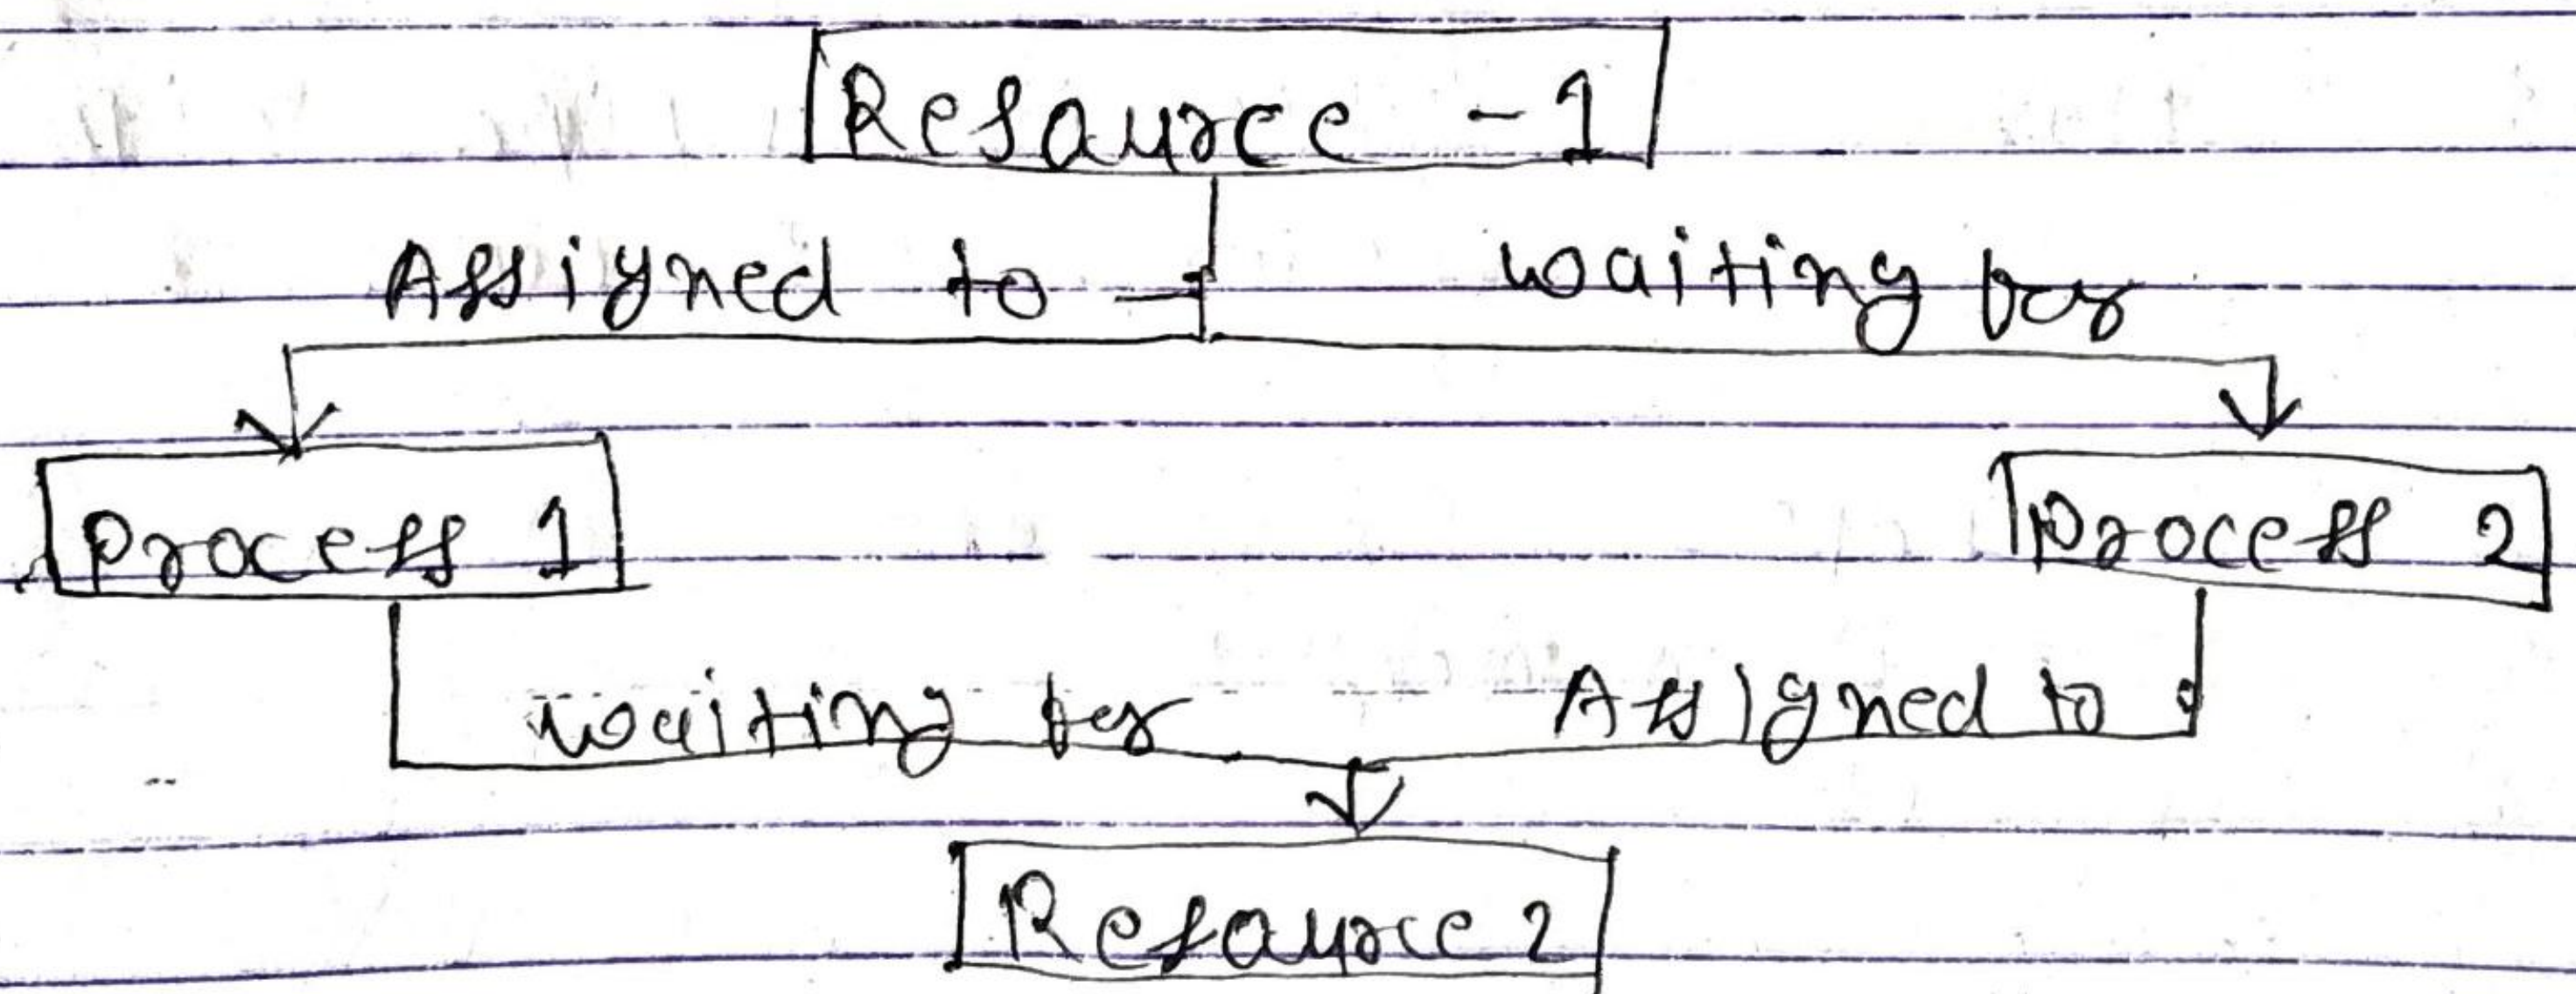 Resource - 1
Assigned to waiting for
Process 1 Process 2
waiting for Assigned to
Resource 2